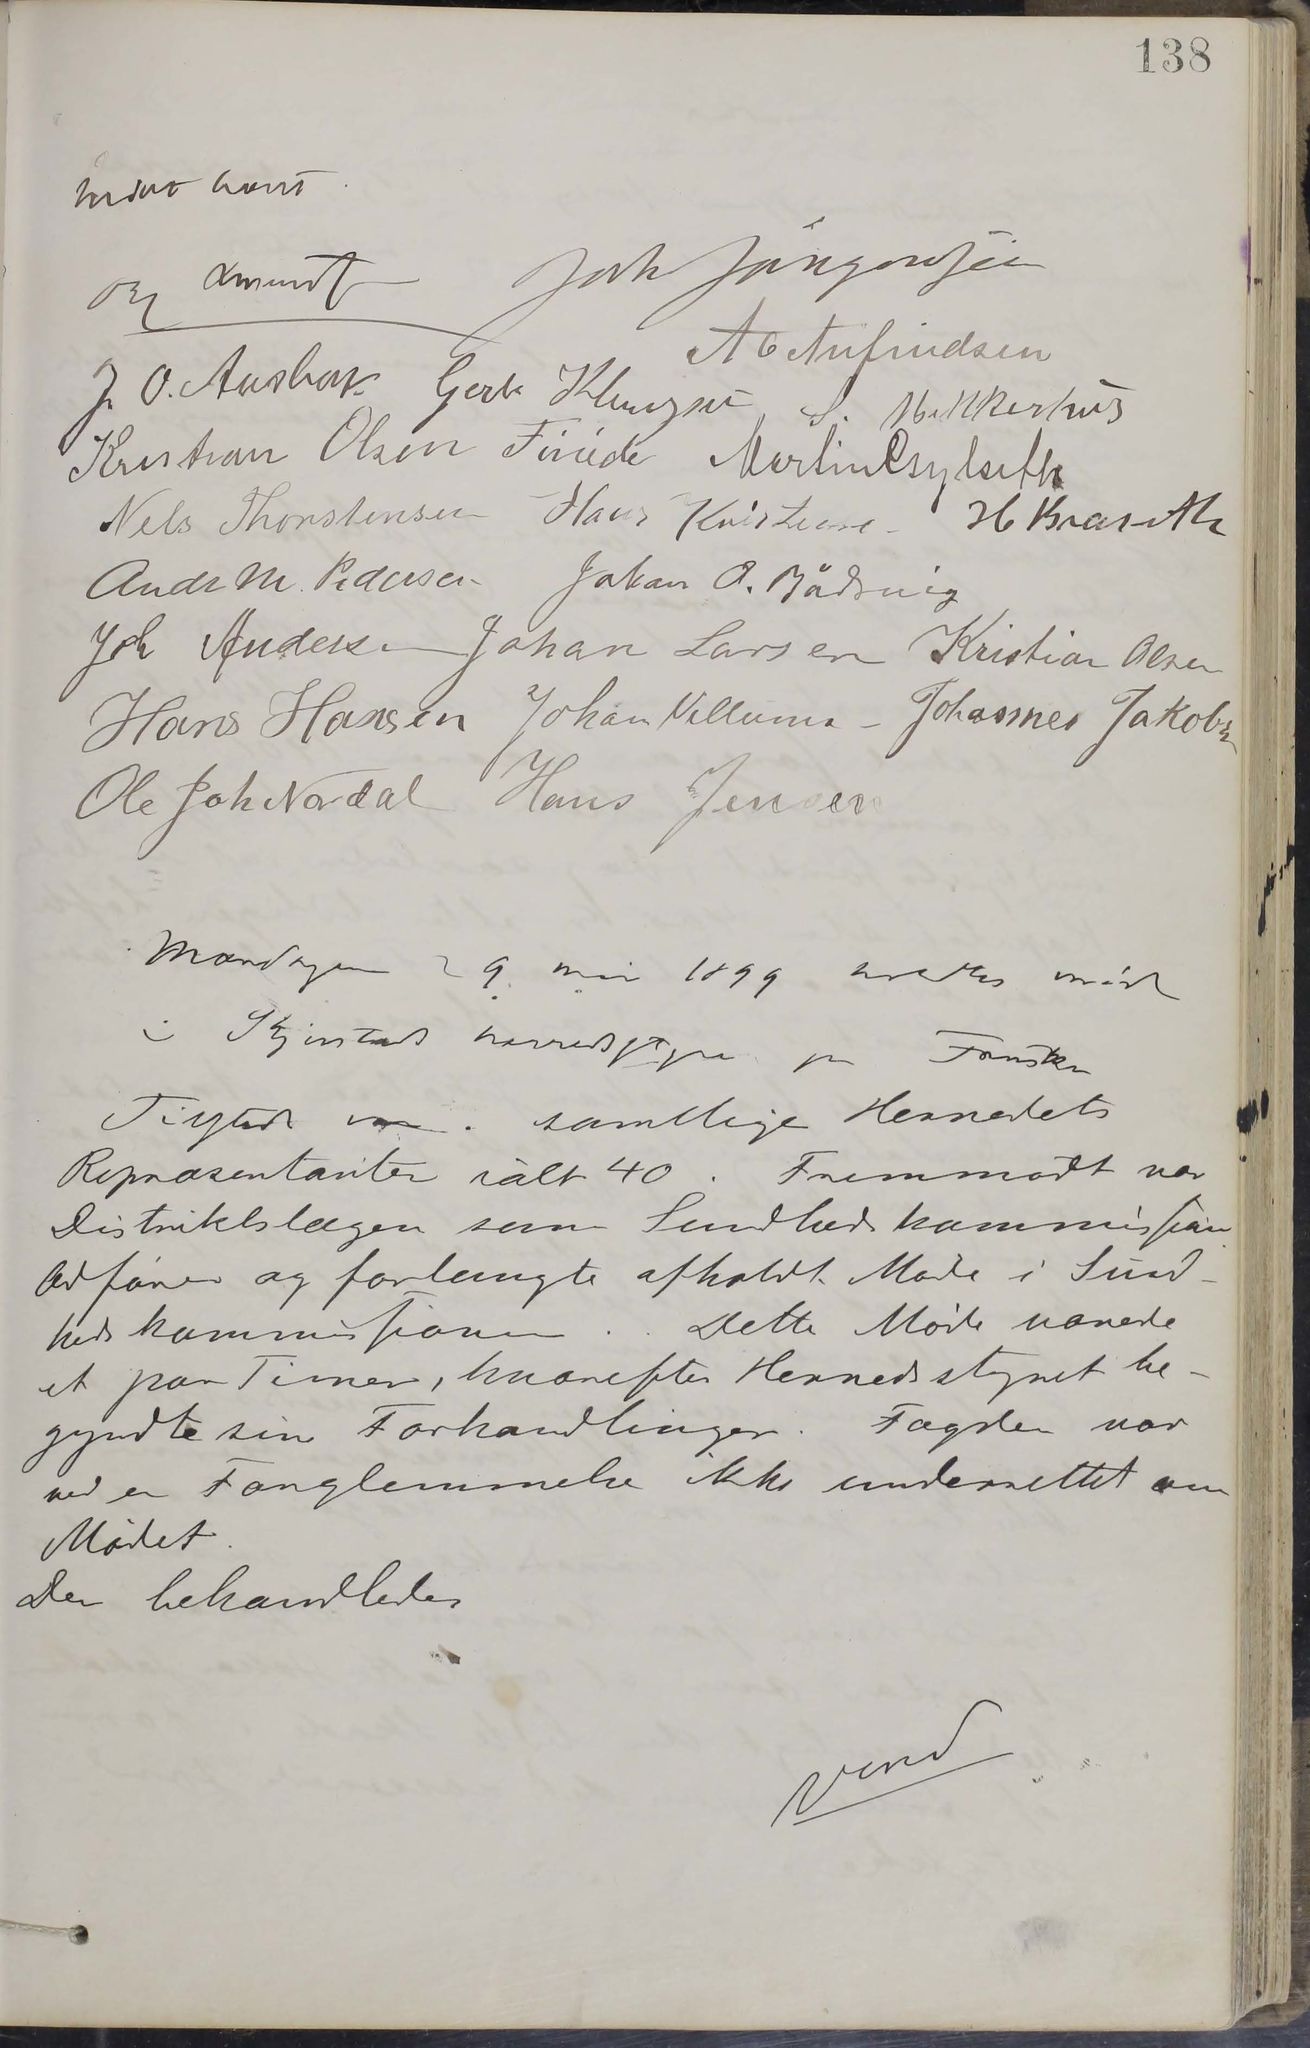 138
mødet hævet.
Joh Jörgensen
A C Anfindsen
J. O. Aasbak Gerh Klungset S. Mikkerhus
Kristian Olsen Finede Martin Gylseth
Nels Thorstensen Hans Kristense H Braseth
Andr M. Pedersen Johan O. Bådsvig
Joh Andersen Johan Larsen Kristian Olsen
Hans Hansen Johan Villumsen Johannes Jakobsen
Ole Joh Nordal Hans Jensen
Mandagen 29 mai 1899 holdtes møde
i Skjerstads herredsstyre på Fauske
Tilstede var samtlige Herredets
Repræsentanter ialt 40. Fremmødt var
Distriktslægen som Sundhedskommissionens
Ordfører og forlangte afholdt Møde i Sund-
hedskommissionen. Dette Møde varede
et par Timer, hvorefter Herredsstyret be-
gyndte sine Forhandlinger. Fogden var
ved en Forglemmelse ikke underrettet om
Mødet.
Der behandledes
Vend